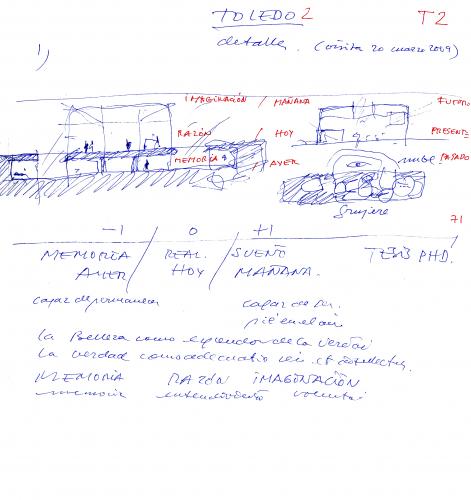 TOLEDO 2 T2
detalles. (visita 20 marzo 2009)
1)
IMAGINACIÓN / MAÑANA FUTURO
RAZÓN / HOY PRESENTE
MEMORIA / AYER nube PASADO
gruyère
71
-1 0 +1
MEMORIA / REAL. / SUEÑO TESIS PHD.
AYER / HOY / MAÑANA.
capaz de permanecer capaz de ser.
pie en el aire
La Belleza como esplendor de la Verdad
La verdad como adecuatio rei et intellectus.
MEMORIA RAZÓN IMAGINACIÓN
memoria entendimiento voluntad